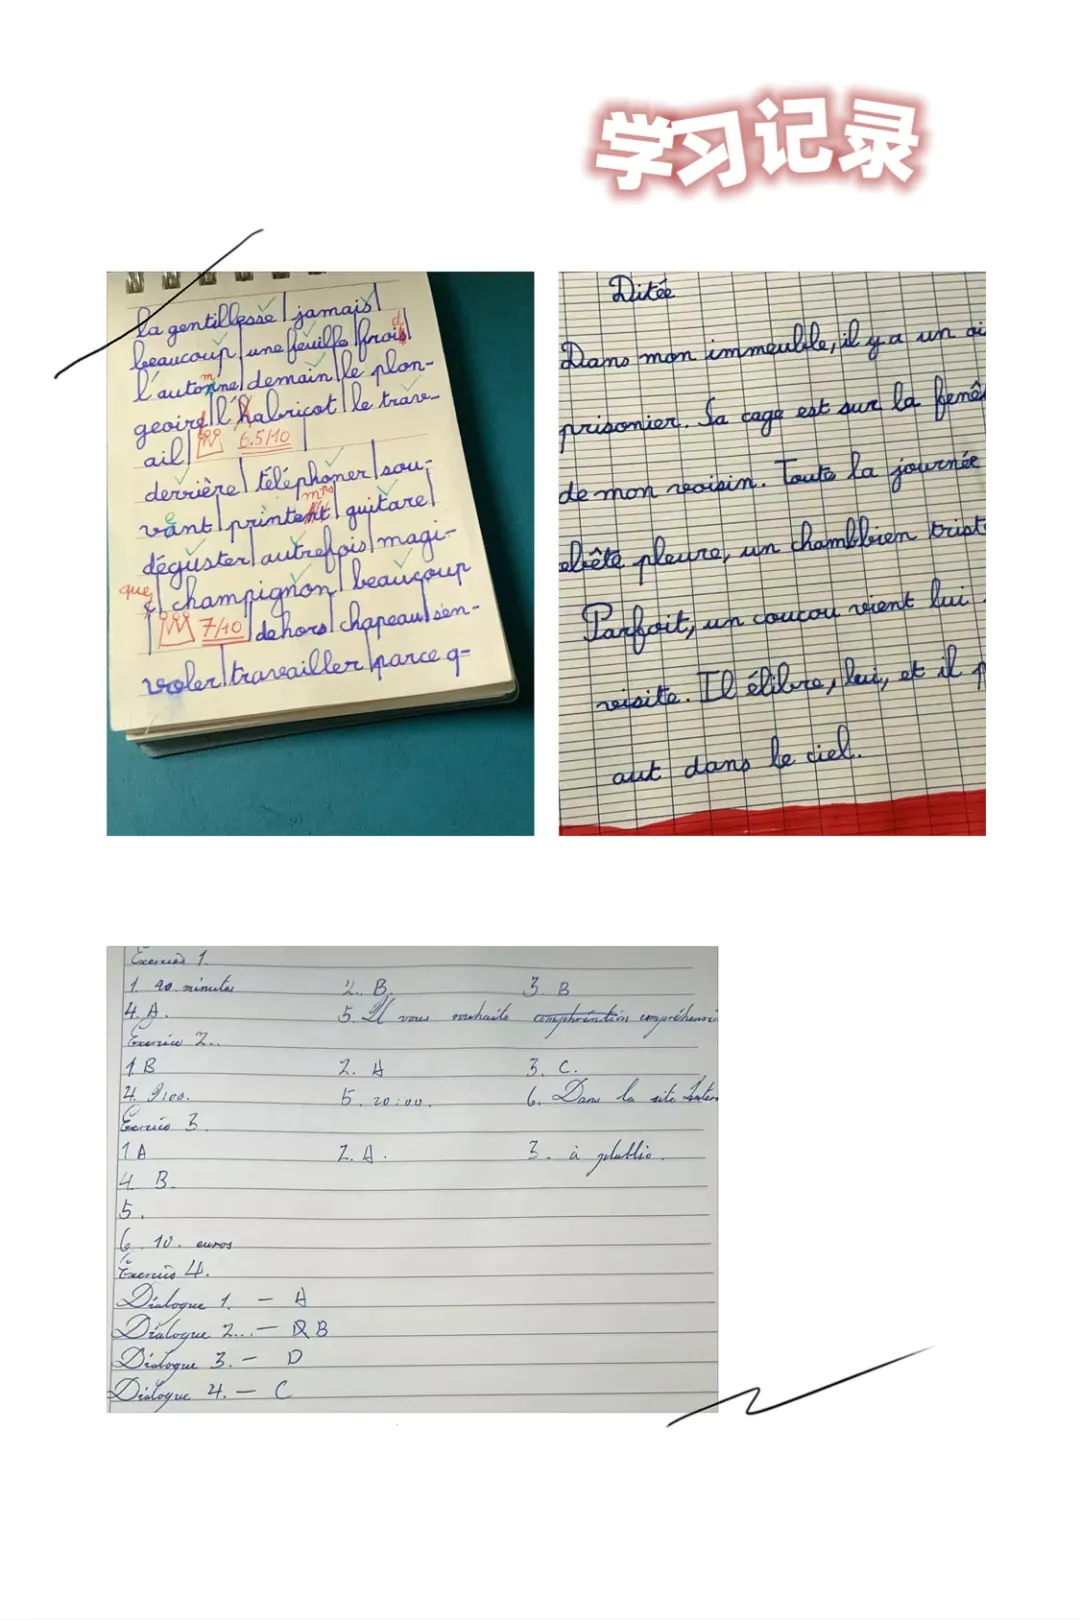 学习记录
la gentillesse | jamais |
beaucoup | une feuille | frois d
l'autonne m | demain | le plon-
geoire | l'habricot | le trava-
ail | 6.5/10
derrière | téléphoner | sou-
vant e | printent mps | guitare |
déguster | autrefois | magi-
que | champignon | beaucoup
| 7/10 | dehors | chapeau | sen-
voler | travailler | parce q-
Ditée
Dans mon immeuble, il y a un oi
prisonier. Sa cage est sur la fenê
de mon voisin. Toute la journée
pleure, un chamblien trist
Parfoit, un coucou vient lui
visite. Il élibre, lui, et il p
aut dans le ciel.
Exercice 1.
1. 20 minutes 2. B. 3. B
4. A. 5. Il vous souhaite comphréntion compréhensi
Exercice 2.
1 B 2. A 3. C.
4. 9:00. 5. 20:00. 6. Dans la site Inter
Exercice 3.
1 A 2. A. 3. à plublic.
4. B.
5.
6. 10. euros
Exercice 4.
Dialogue 1. – A
Dialogue 2. – B
Dialogue 3. – D
Dialogue 4. – C